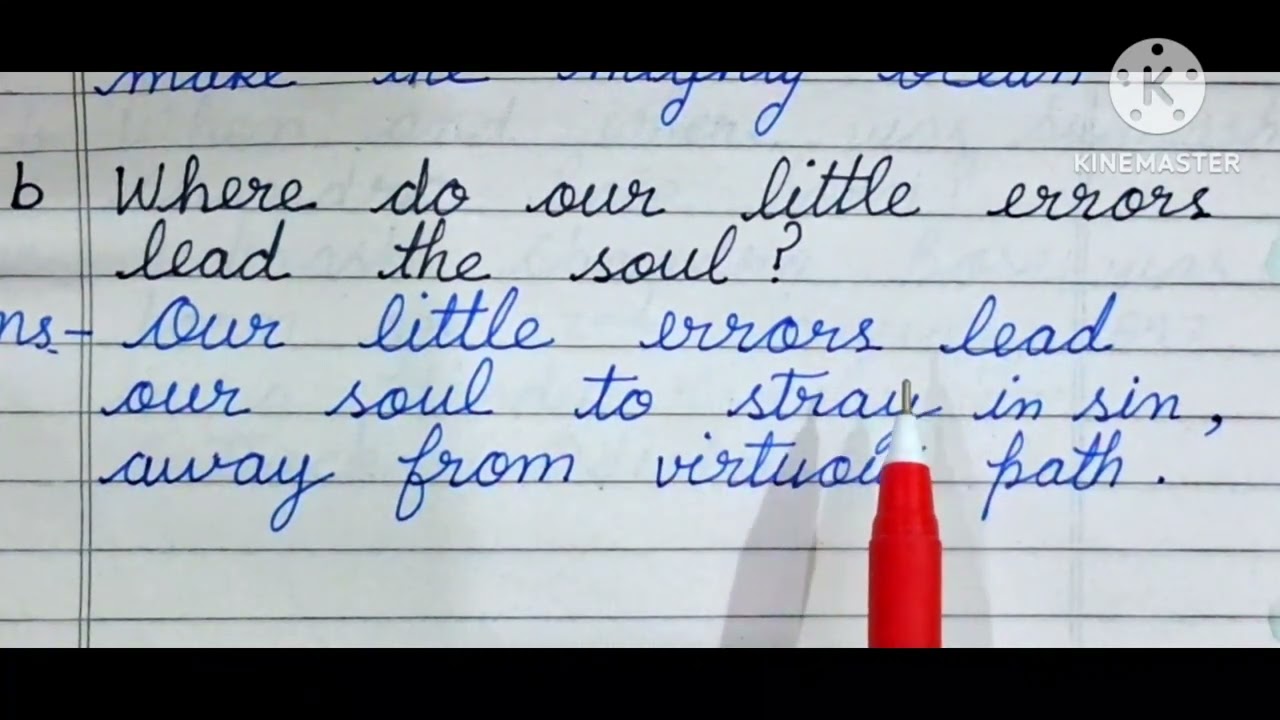 make the mighty ocean
KINEMASTER
b Where do our little errors
lead the soul?
ns.- Our little errors lead
our soul to stray in sin,
away from virtuous path.